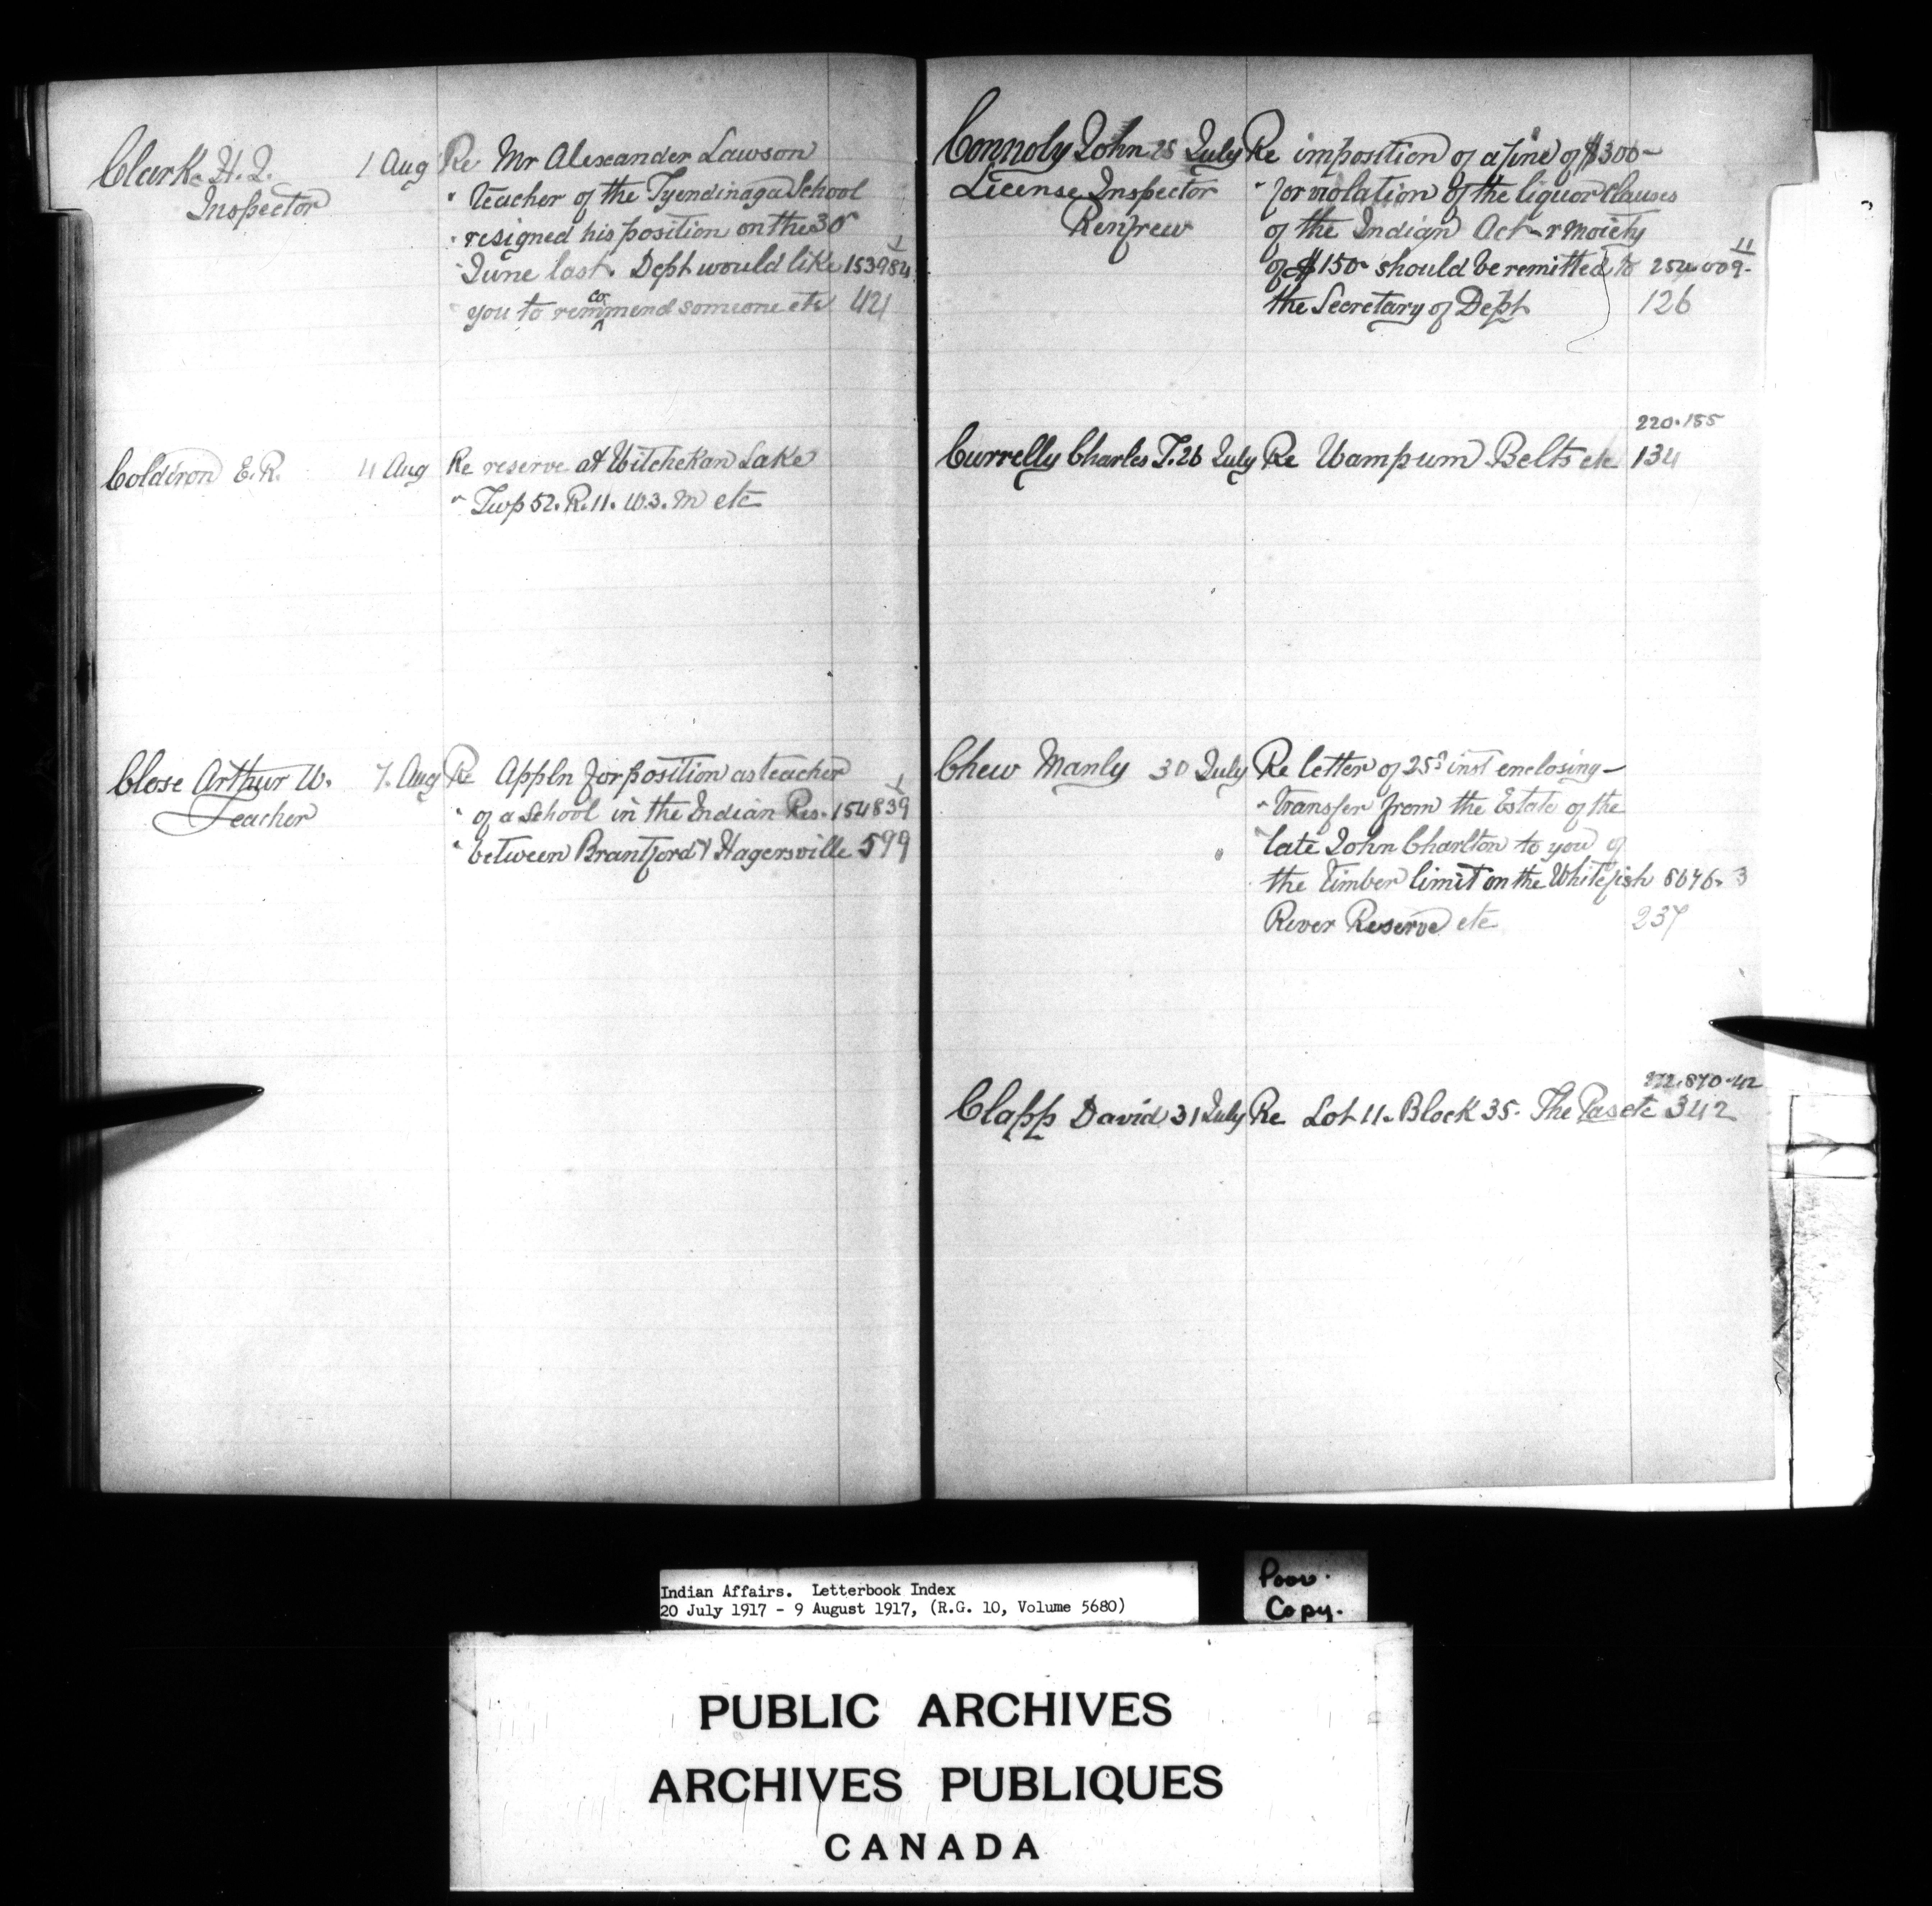 Clark H. J. 1 Aug Re Mr Alexander Lawson
Inspector " teacher of the Tyendinaga School
" resigned his position on the 30
" June last. Dept would like 153984 1
" you to remmend someone etc 421
co
Coldiron E. R. 4 Aug Re reserve at Witchekan Lake
" Twp 52. R. 11. W. 3. M etc
Close Arthur W. 7. Aug Re Appln for position as teacher
Teacher " of a School in the Indian Res. 154839 1
" between Brantford & Hagersville 599
Connoly John 25 July Re imposition of a fine of $300-
License Inspector " for violation of the liquor clauses
Renfrew of the Indian Act - & moiety
of $150 should be remitted to 254,009- 11
the Secretary of Dept 126
220.155
Currelly Charles T. 26 July Re Wampum Belts etc 134
Chew Manly 30 July Re letter of 25th inst enclosing-
" transfer from the Estate of the
" late John Charlton to you of
the timber limit on the Whitefish 8646. 3
River Reserve etc 237
272.870-42
Clapp David 31 July Re Lot 11. Block 35. The Pas etc 342
Indian Affairs. Letterbook Index
20 July 1917 - 9 August 1917, (R.G. 10, Volume 5680)
Poor.
Copy.
PUBLIC ARCHIVES
ARCHIVES PUBLIQUES
CANADA